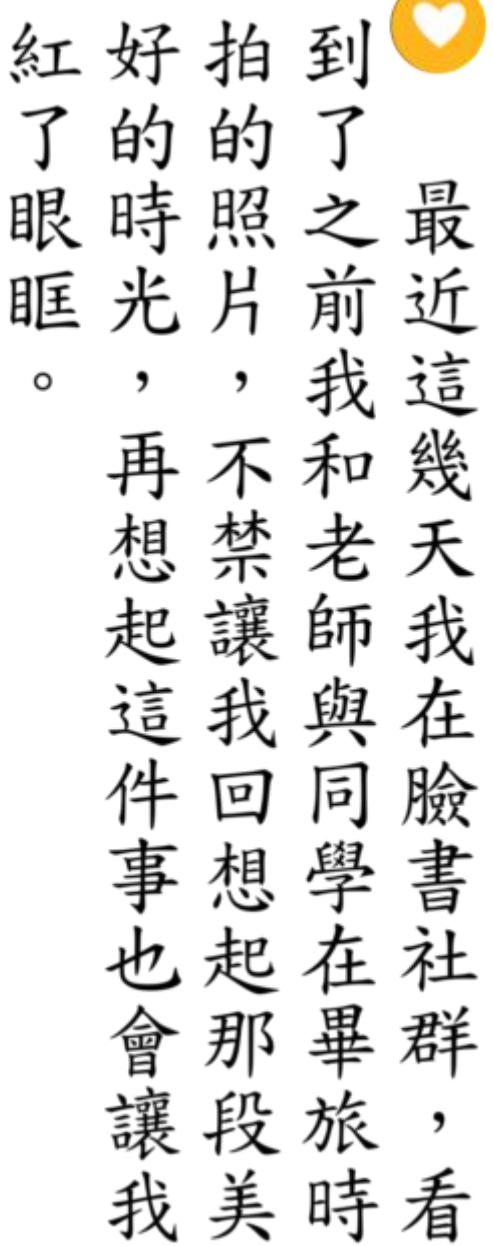 最近這幾天我在臉書社群，看
到了之前我和老師與同學在畢旅時
拍的照片，不禁讓我回想起那段美
好的時光，再想起這件事也會讓我
紅了眼眶。